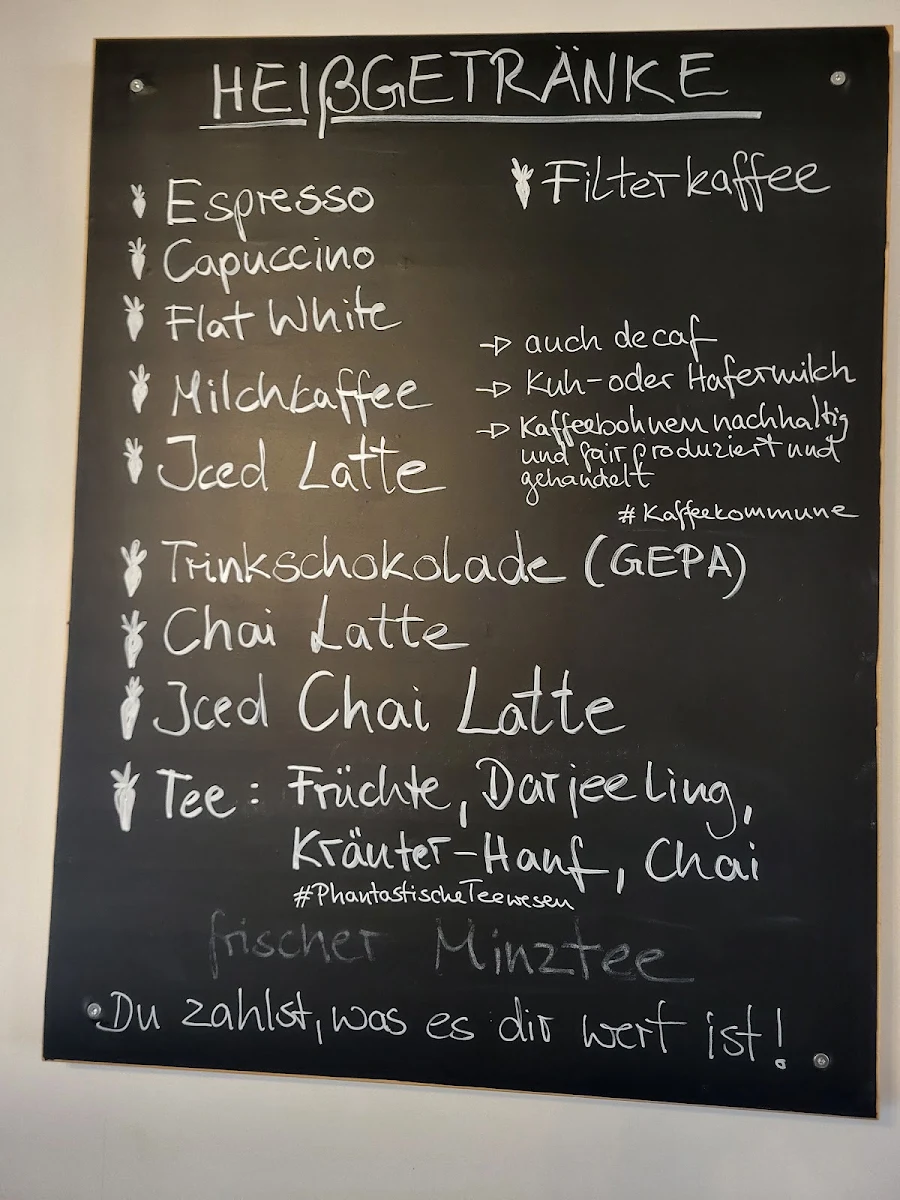 HEIßGETRÄNKE
Espresso
Capuccino
Flat White
Milchkaffee
Iced Latte
Filterkaffee
→ auch decaf
→ Kuh-oder Hafermilch
→ Kaffeebohnen nachhaltig
und fair produziert und
gehandelt
#Kaffeekommune
Trinkschokolade (GEPA)
Chai Latte
Iced Chai Latte
Tee: Früchte, Darjeeling,
Kräuter-Hanf, Chai
#PhantastischeTeewesen
frischer Minztee
Du zahlst, was es dir wert ist!